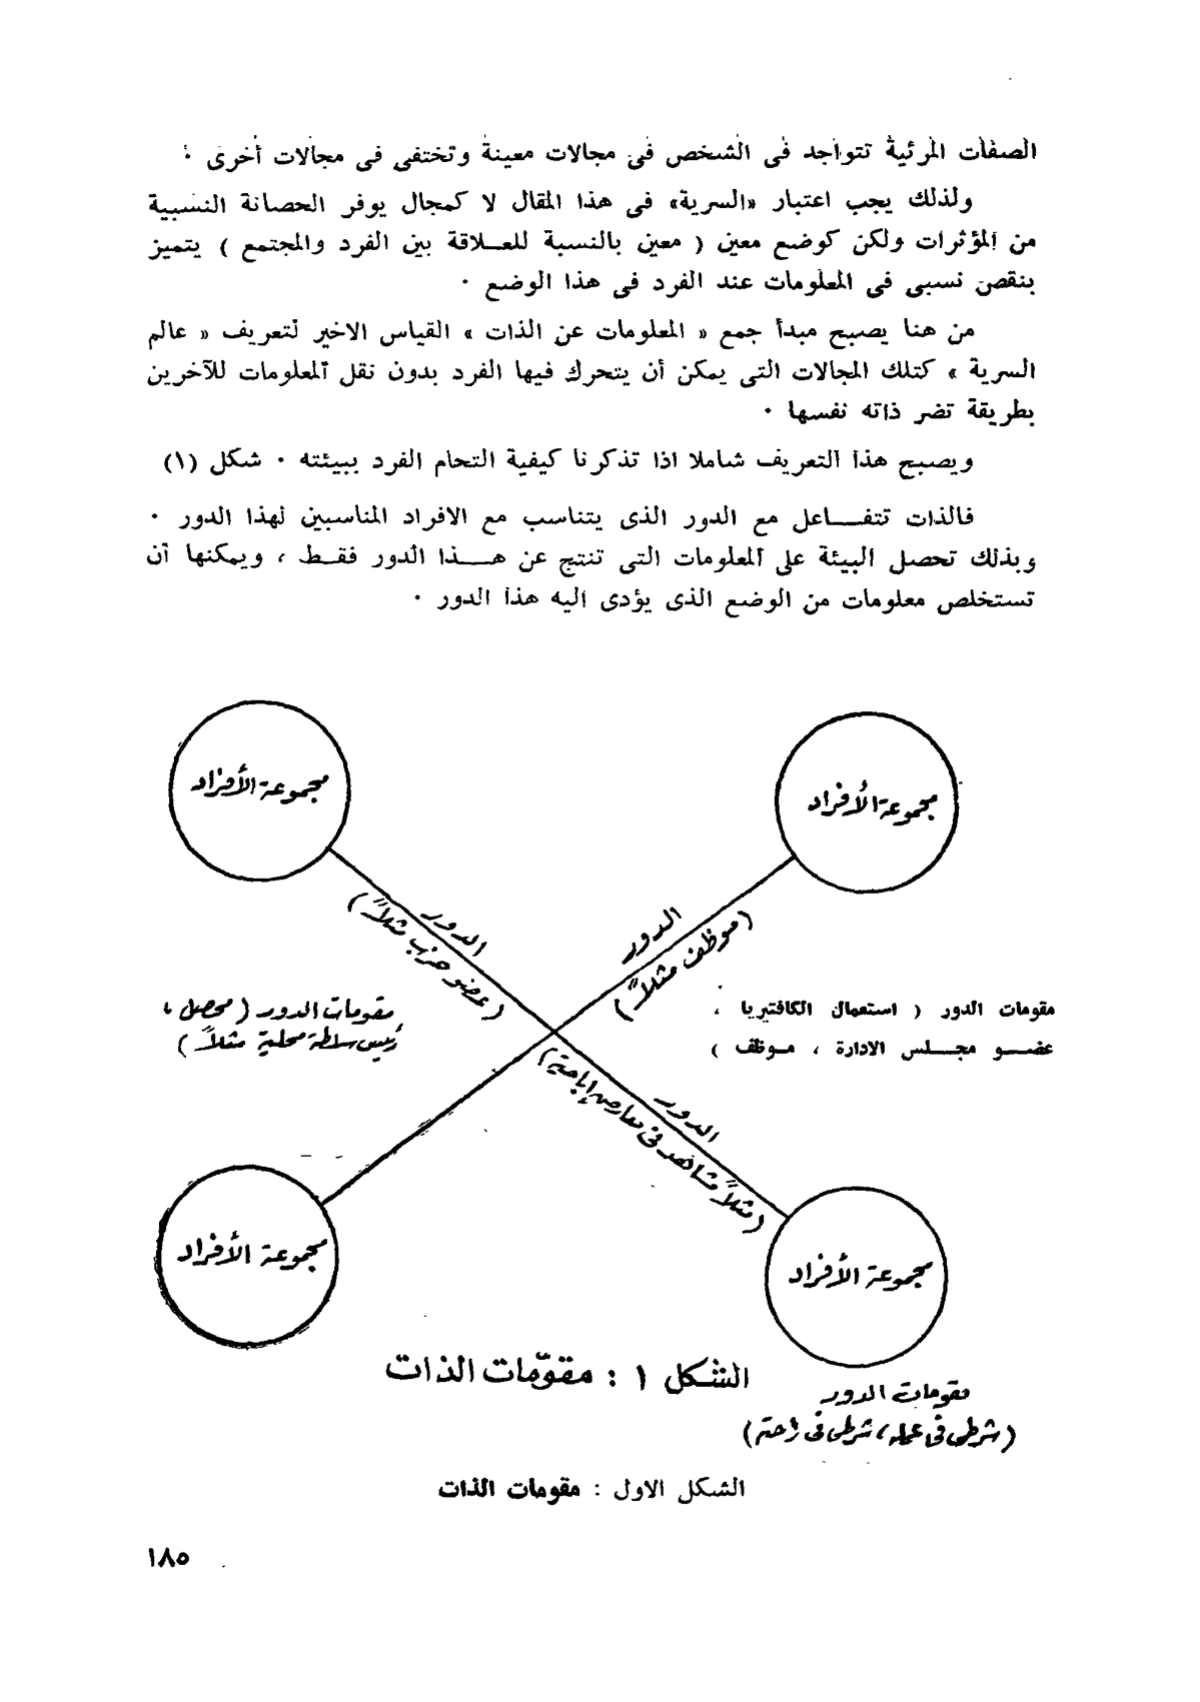 الصفات المرئية تتواجد فى الشخص فى مجالات معينة وتختفى فى مجالات أخرى ٠
ولذلك يجب اعتبار «السرية» فى هذا المقال لا كمجال يوفر الحصانة النسبية
من المؤثرات ولكن كوضع معين ( معين بالنسبة للعلاقة بين الفرد والمجتمع ) يتميز
بنقص نسبى فى المعلومات عند الفرد فى هذا الوضع ٠
من هنا يصبح مبدأ جمع « المعلومات عن الذات » القياس الاخير لتعريف « عالم
السرية » كتلك المجالات التى يمكن أن يتحرك فيها الفرد بدون نقل المعلومات للآخرين
بطريقة تضر ذاته نفسها ٠
ويصبح هذا التعريف شاملا اذا تذكرنا كيفية التحام الفرد ببيئته ٠ شكل (١)
فالذات تتفاعل مع الدور الذى يتناسب مع الافراد المناسبين لهذا الدور ٠
وبذلك تحصل البيئة على المعلومات التى تنتج عن هذا الدور فقط ، ويمكنها أن
تستخلص معلومات من الوضع الذى يؤدى اليه هذا الدور ٠
مجموعة الأفراد
مجموعة الأفراد
الدور
(موظف مثلاً)
الدور
(عضو حزب مثلاً)
مقومات الدور ( استعمال الكافتيريا ،
عضو مجلس الادارة ، موظف )
مقومات الدور (محصل ،
رئيس سلطة محلية مثلاً)
الدور
(مثلاً مشاهد فى معارض إباحية)
مجموعة الأفراد
مجموعة الأفراد
الشكل ١ : مقوّمات الذات
مقومات الدور
(شرطى فى عمله ، شرطى فى راحته)
الشكل الاول : مقومات الذات
١٨٥